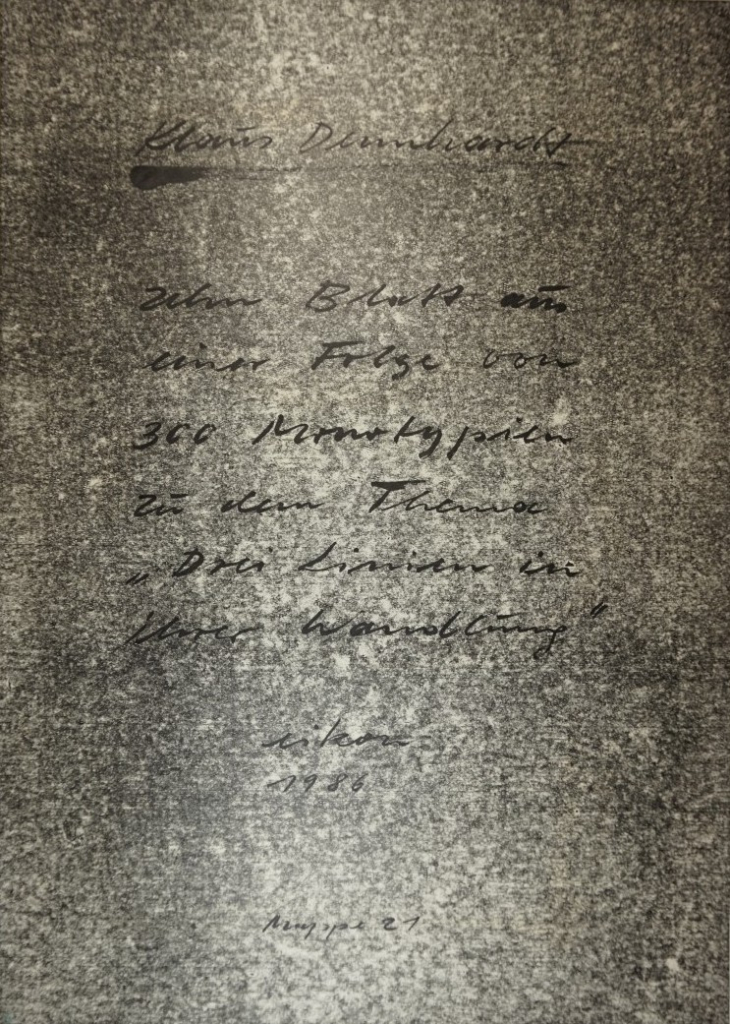 Klaus Dennhardt
zehn Blatt aus
einer Folge von
300 Monotypien
zu dem Thema
„Drei Linien in
ihrer Wandlung"
eikon
1986
Mappe 21